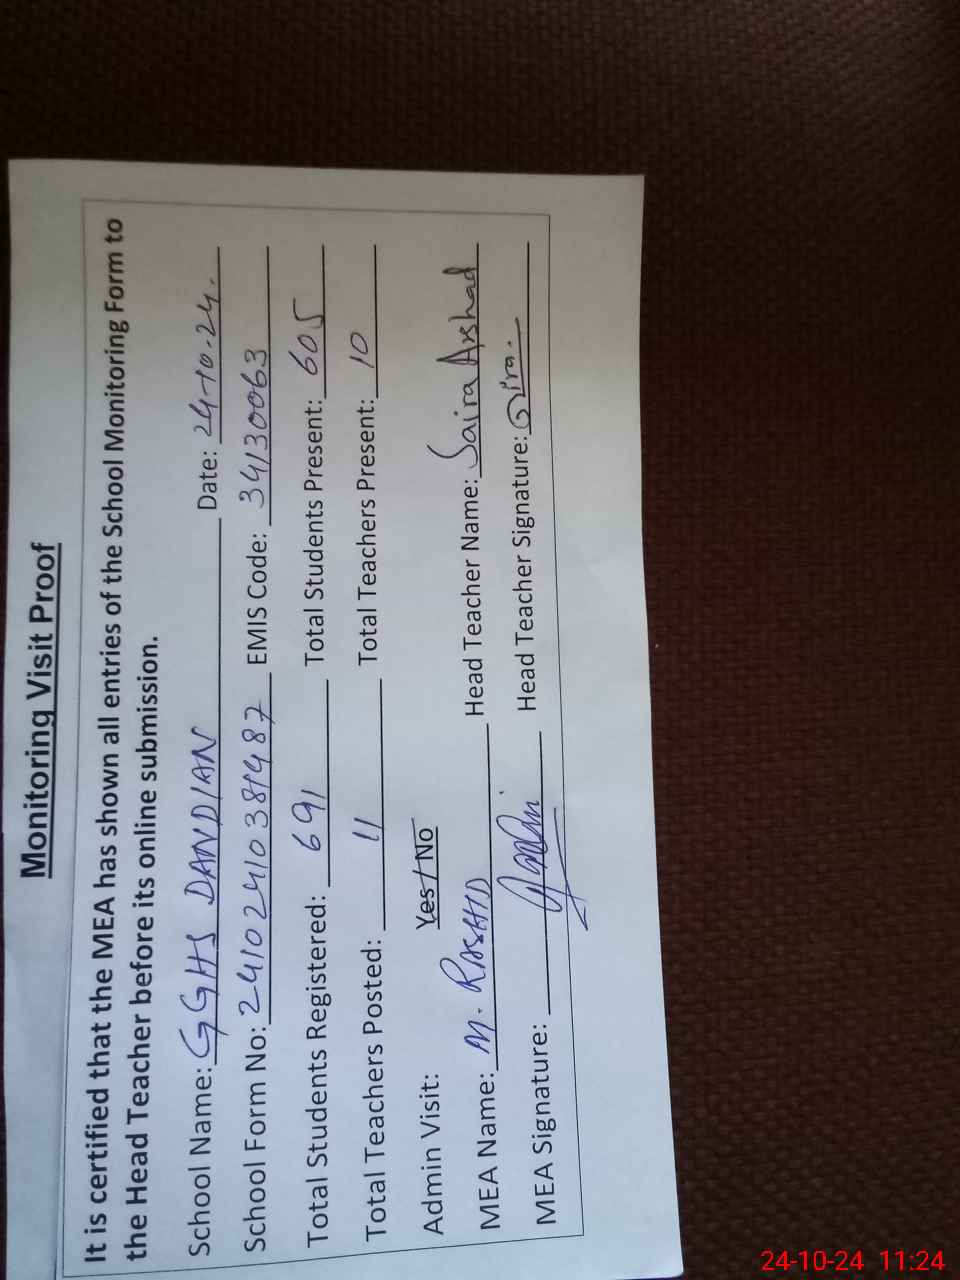 Monitoring Visit Proof
It is certified that the MEA has shown all entries of the School Monitoring Form to
the Head Teacher before its online submission.
School Name: GGHS DANDIAN Date: 24-10-24.
School Form No: 24102410381487 EMIS Code: 34130063
Total Students Registered: 691 Total Students Present: 605
Total Teachers Posted: 11 Total Teachers Present: 10
Admin Visit: Yes/No
MEA Name: M. RASHID Head Teacher Name: Saira Arshad
MEA Signature: Head Teacher Signature:
24-10-24 11:24